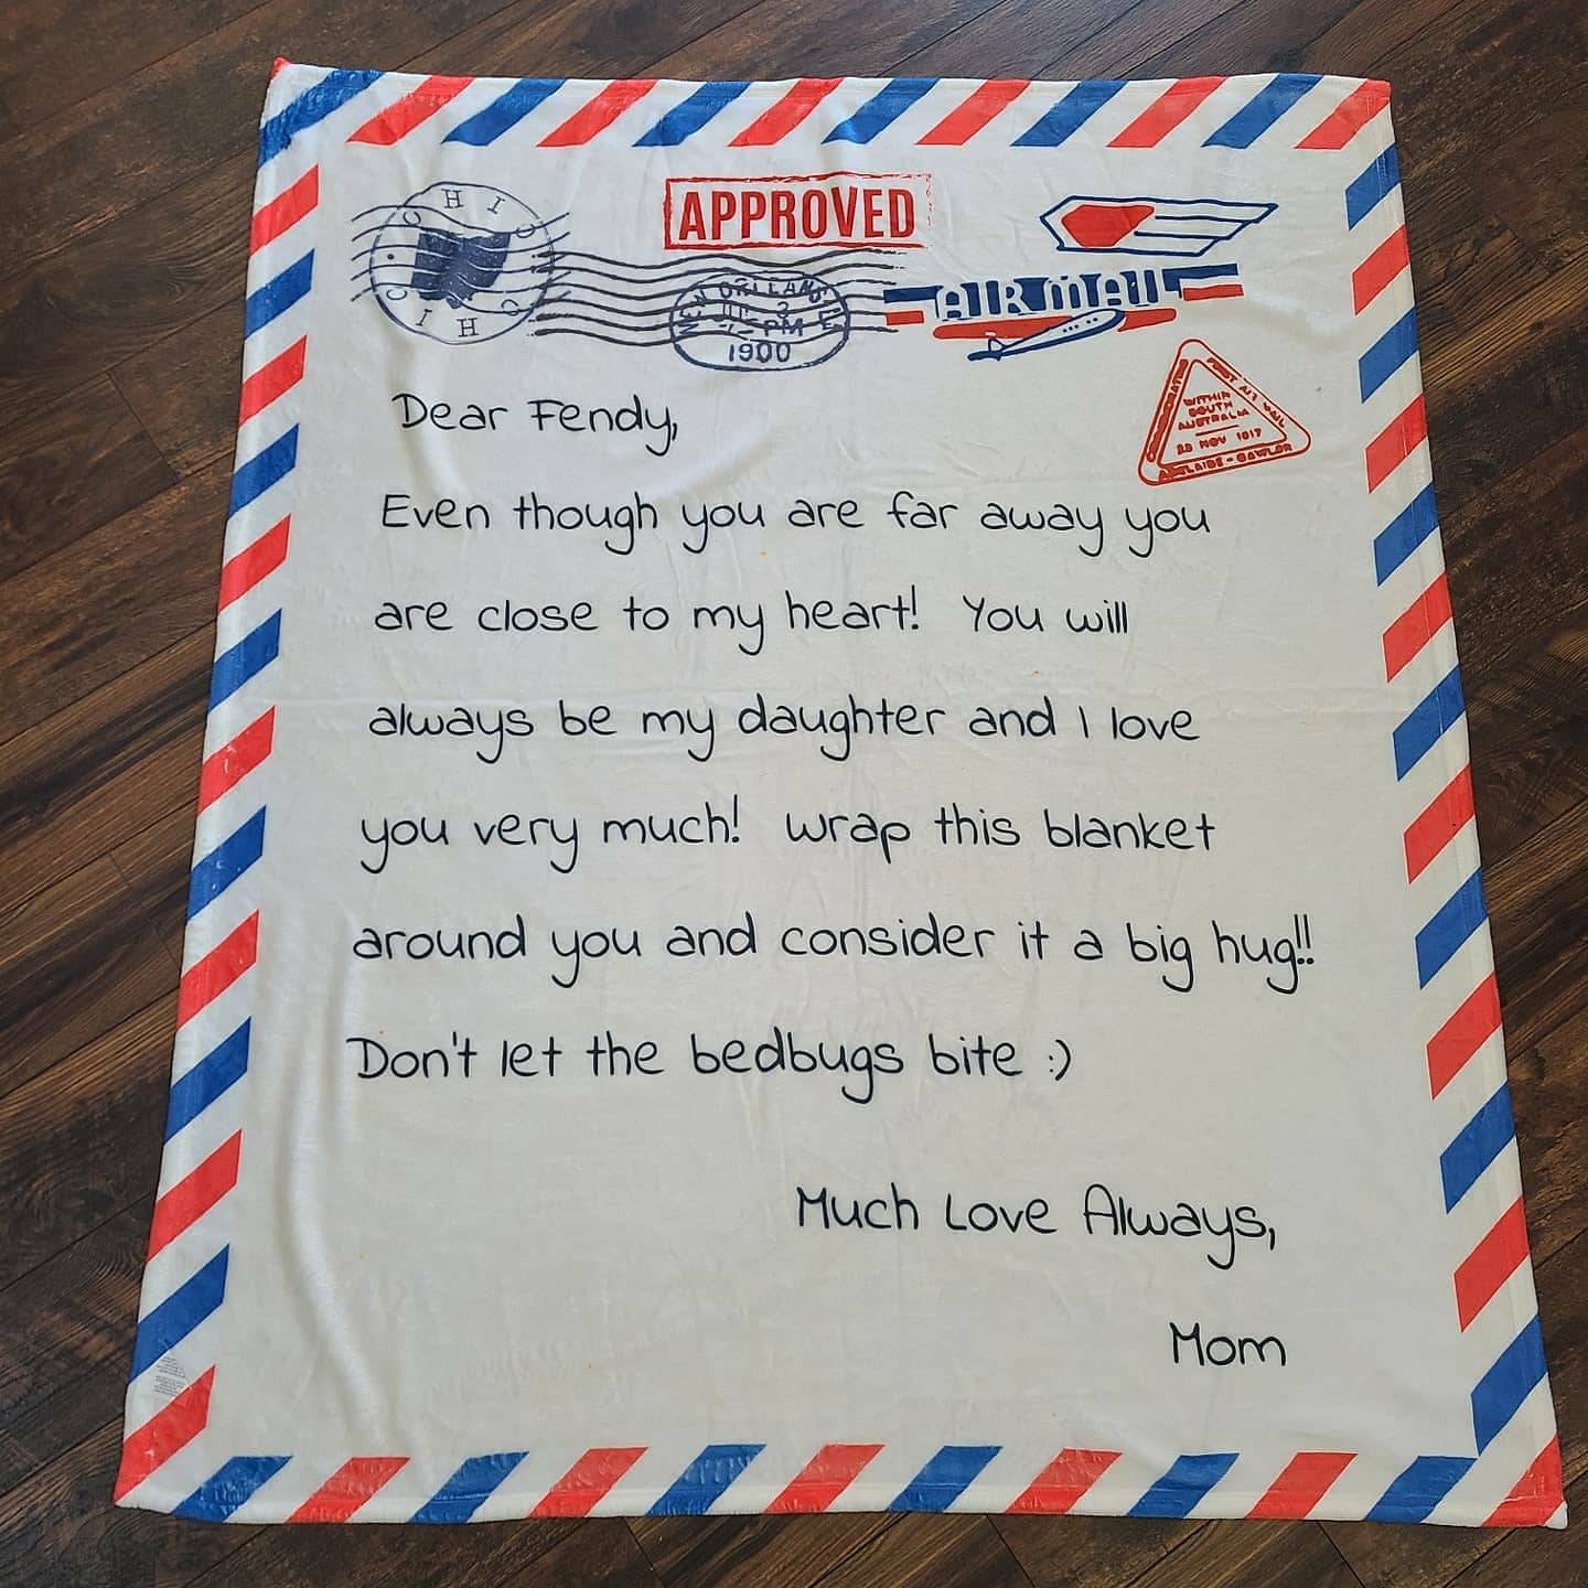 OHIO
OHIO
APPROVED
AIR MAIL
1900
FIRST AIR MAIL
WITHIN
SOUTH
AUSTRALIA
23 NOV 1917
ADELAIDE - GAWLER
Dear Fendy,
Even though you are far away you
are close to my heart! You will
always be my daughter and I love
you very much! Wrap this blanket
around you and consider it a big hug!!
Don't let the bedbugs bite :)
Much Love Always,
Mom